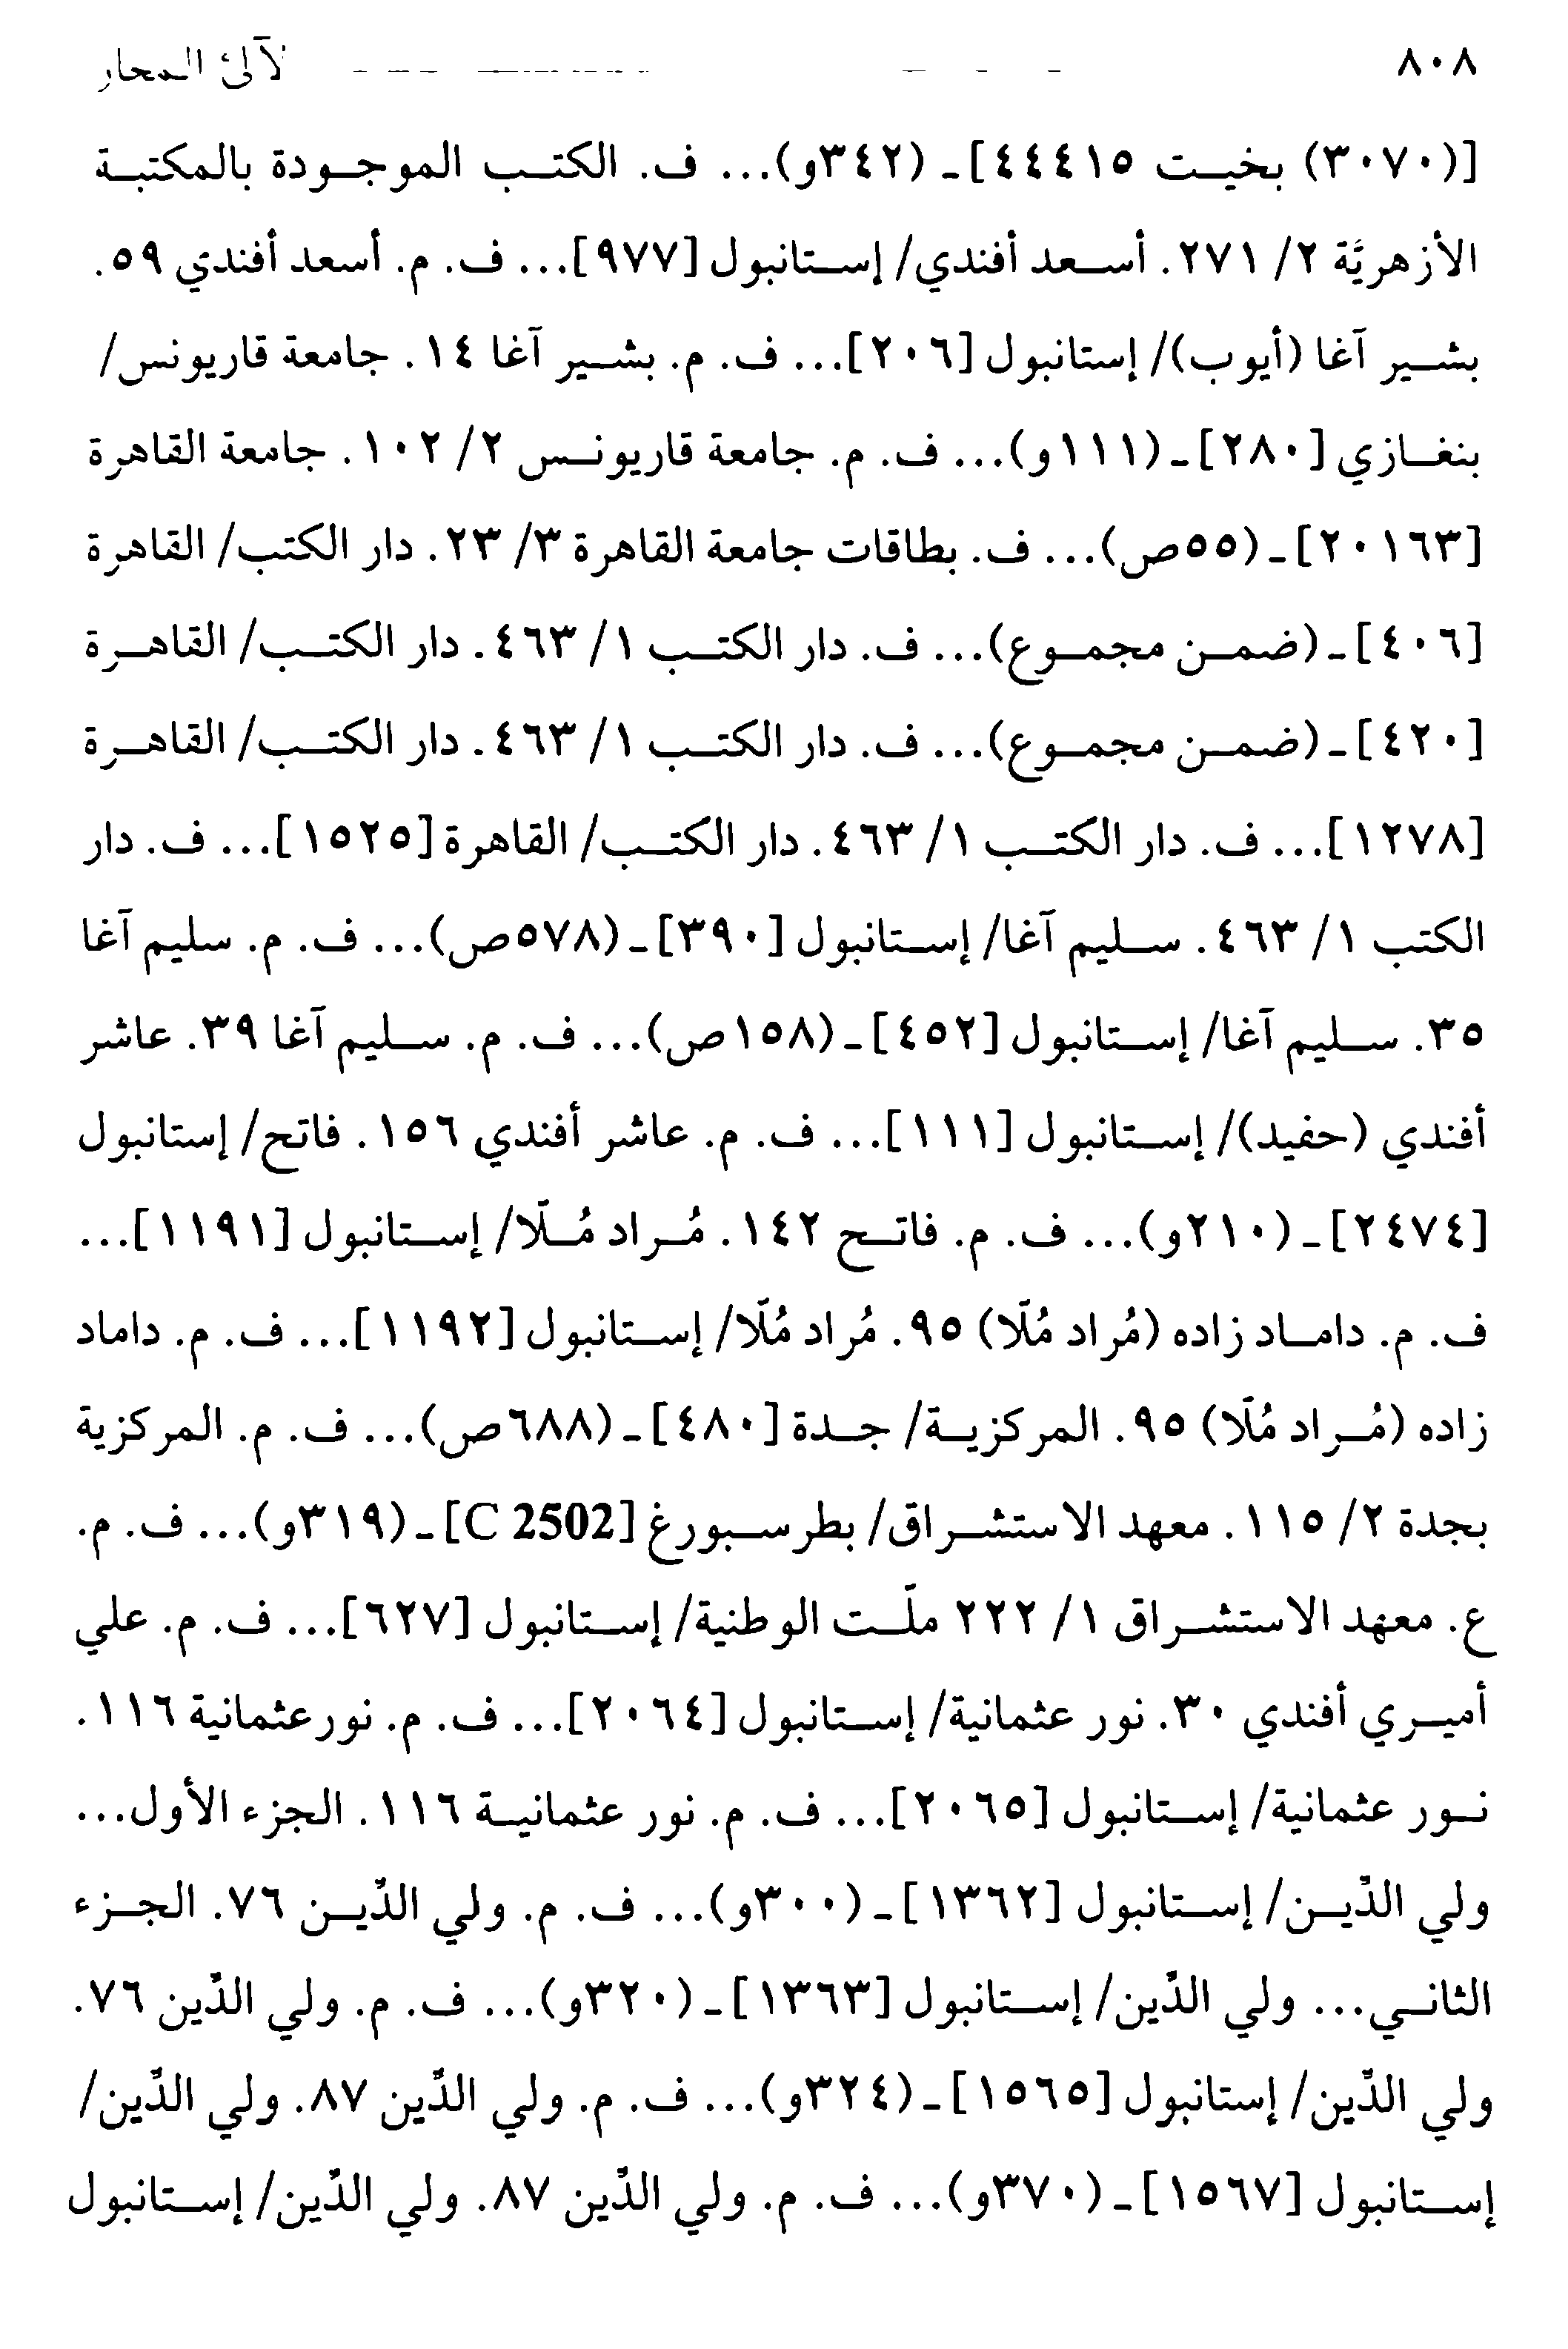 ٨٠٨ لآلئ المحار
[(٣٠٧٠) بخيت ٤٤٤١٥] ـ (٣٤٢و)... ف. الكتب الموجودة بالمكتبة
الأزهريَّة ٢/ ٢٧١. أسعد أفندي/ إستانبول [٩٧٧]... ف. م. أسعد أفندي ٥٩.
بشير آغا (أيوب)/ إستانبول [٢٠٦]... ف. م. بشير آغا ١٤. جامعة قاريونس/
بنغازي [٢٨٠] ـ (١١١و)... ف. م. جامعة قاريونس ٢/ ١٠٢. جامعة القاهرة
[٢٠١٦٣] ـ (٥٥ص)... ف. بطاقات جامعة القاهرة ٣/ ٢٣. دار الكتب/ القاهرة
[٤٠٦] ـ (ضمن مجموع)... ف. دار الكتب ١/ ٤٦٣. دار الكتب/ القاهرة
[٤٢٠] ـ (ضمن مجموع)... ف. دار الكتب ١/ ٤٦٣. دار الكتب/ القاهرة
[١٢٧٨]... ف. دار الكتب ١/ ٤٦٣. دار الكتب/ القاهرة [١٥٢٥]... ف. دار
الكتب ١/ ٤٦٣. سليم آغا/ إستانبول [٣٩٠] ـ (٥٧٨ص)... ف. م. سليم آغا
٣٥. سليم آغا/ إستانبول [٤٥٢] ـ (١٥٨ص)... ف. م. سليم آغا ٣٩. عاشر
أفندي (حفيد)/ إستانبول [١١١]... ف. م. عاشر أفندي ١٥٦. فاتح/ إستانبول
[٢٤٧٤] ـ (٢١٠و)... ف. م. فاتح ١٤٢. مُراد مُلّا/ إستانبول [١١٩١]...
ف. م. داماد زاده (مُراد مُلّا) ٩٥. مُراد مُلّا/ إستانبول [١١٩٢]... ف. م. داماد
زاده (مُراد مُلّا) ٩٥. المركزية/ جدة [٤٨٠] ـ (٦٨٨ص)... ف. م. المركزية
بجدة ٢/ ١١٥. معهد الاستشراق/ بطرسبورغ [C 2502] ـ (٣١٩و)... ف. م.
ع. معهد الاستشراق ١/ ٢٢٢ ملّت الوطنية/ إستانبول [٦٢٧]... ف. م. علي
أميري أفندي ٣٠. نور عثمانية/ إستانبول [٢٠٦٤]... ف. م. نورعثمانية ١١٦.
نور عثمانية/ إستانبول [٢٠٦٥]... ف. م. نور عثمانية ١١٦. الجزء الأول...
ولي الدِّين/ إستانبول [١٣٦٢] ـ (٣٠٠و)... ف. م. ولي الدِّين ٧٦. الجزء
الثاني... ولي الدِّين/ إستانبول [١٣٦٣] ـ (٣٢٠و)... ف. م. ولي الدِّين ٧٦.
ولي الدِّين/ إستانبول [١٥٦٥] ـ (٣٢٤و)... ف. م. ولي الدِّين ٨٧. ولي الدِّين/
إستانبول [١٥٦٧] ـ (٣٧٠و)... ف. م. ولي الدِّين ٨٧. ولي الدِّين/ إستانبول